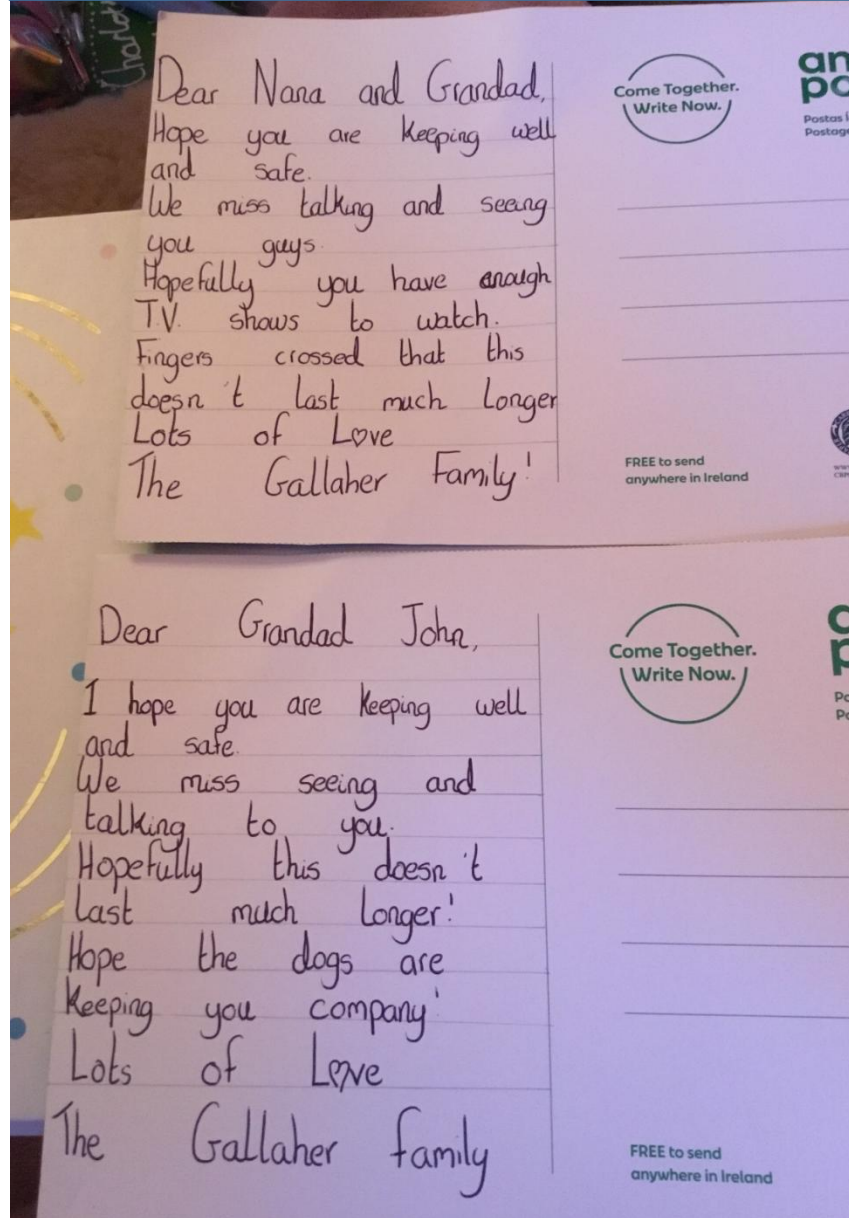 Charlot
Dear Nana and Grandad,
Hope you are keeping well
and safe.
We miss talking and seeing
you guys.
Hopefully you have enough
T.V. shows to watch.
Fingers crossed that this
doesn't last much longer
Lots of Love
The Gallaher Family!
Come Together.
Write Now.
an
po
Postas
Postage
FREE to send
anywhere in Ireland
Dear Grandad John,
I hope you are keeping well
and safe.
We miss seeing and
talking to you.
Hopefully this doesn't
last much longer!
Hope the dogs are
keeping you company!
Lots of Love
The Gallaher family
Come Together.
Write Now.
Po
Po
FREE to send
anywhere in Ireland